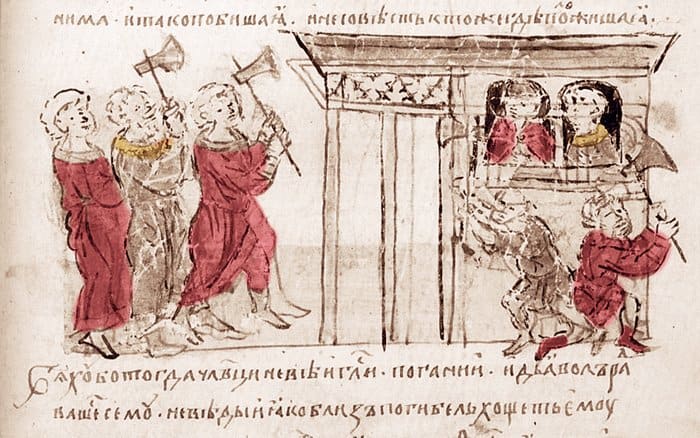 нима · итакопобишаѧ · инесовѣсть ктожегдѣпоⷧжишаѧ ·
Бѧхꙋботогдачл҃вциневѣигл҃и · поганїи · идьаволъра
ваше семоу · невѣдыиꙗкоблизъпогибельхощетьемоу